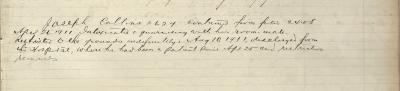 Joseph Collins 2674 continued from folio 2408
Apr 26 1911 Intoxicated & quarreling with his room mate.
Restricted to the grounds indefinitely. Aug 10 1911, discharged from
the Hospital, where he had been a patient since Apr 25 and restriction
removed